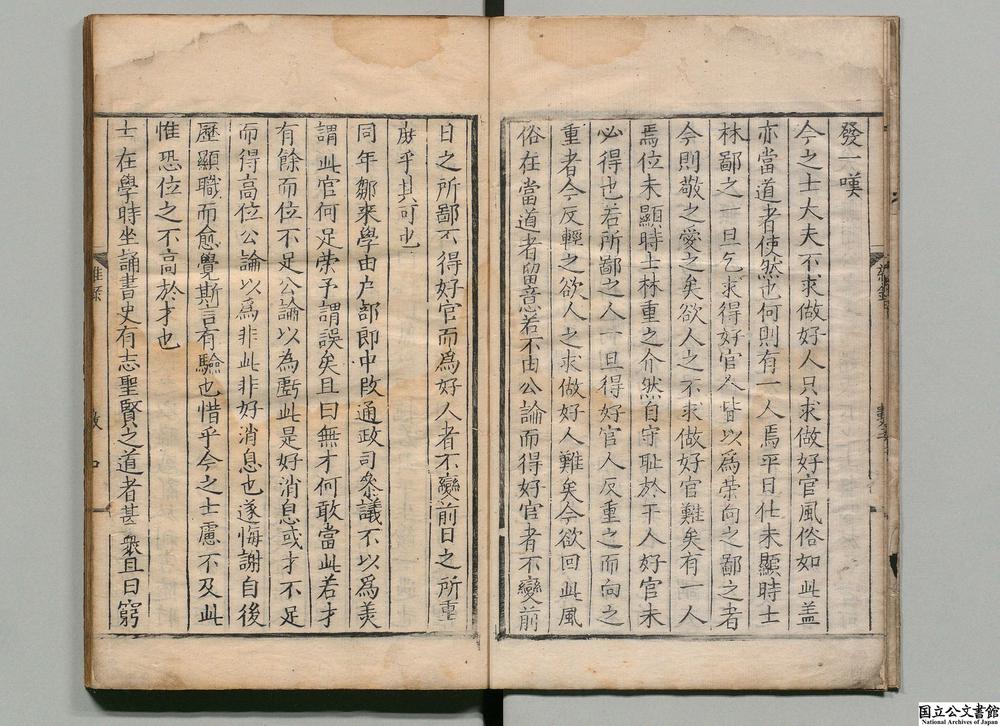 發一嘆
今之士大夫不求做好人只求做好官風俗如此盖
亦當道者使然也何則有一人焉平日仕未顯時士
林鄙之一旦乞求得好官人皆以爲荣向之鄙之者
今則敬之愛之矣欲人之不求做好官難矣有一人
焉位未顯時士林重之介然自守耻於干人好官未
必得也若所鄙之人一旦得好官人反重之而向之
重者今反輕之欲人之求做好人難矣今欲回此風
俗在當道者留意若不由公論而得好官者不變前
日之所鄙不得好官而爲好人者不變前日之所重
庶乎其可也
同年鄒來學由户部郎中改通政司叅議不以爲美
謂此官何足荣予謂誤矣且曰無才何敢當此若才
有餘而位不足公論以為虧此是好消息或才不足
而得高位公論以爲非此非好消息也遂悔謝自後
歷顯職而愈覺斯言有驗也惜乎今之士慮不及此
惟恐位之不高於才也
士在學時坐誦書史有志聖賢之道者甚衆且曰窮
雜錄
国立公文書館
National Archives of Japan